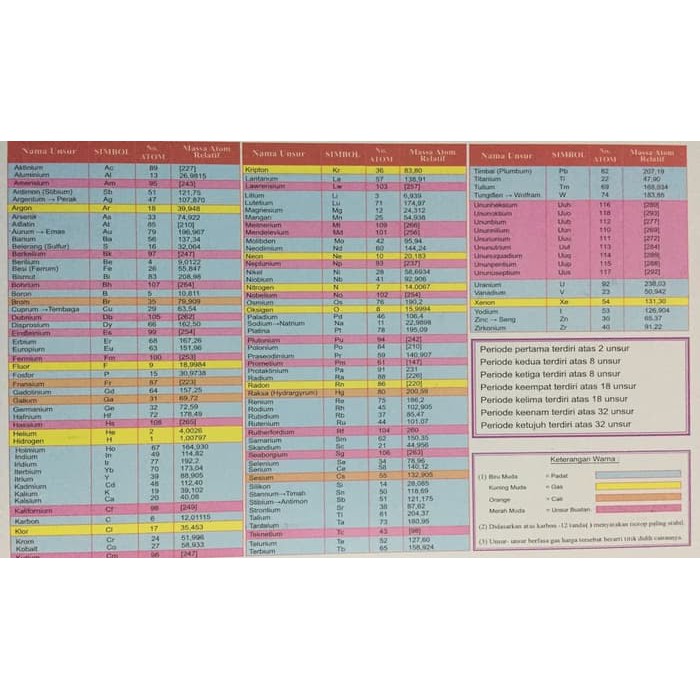 Nama Unsur SIMBOL No. ATOM Massa Atom Relatif
Aktinium Ac 89 [227]
Aluminium Al 13 26,9815
Amerisium Am 95 [243]
Antimon (Stibium) Sb 51 121,75
Argentum → Perak Ag 47 107,870
Argon Ar 18 39,948
Arsenik As 33 74,922
Astatin At 85 [210]
Aurum → Emas Au 79 196,967
Barium Ba 56 137,34
Belerang (Sulfur) S 16 32,064
Berkelium Bk 97 [247]
Berilium Be 4 9,0122
Besi (Ferrum) Fe 26 55,847
Bismut Bi 83 208,98
Bohrium Bh 107 [264]
Boron B 5 10,811
Brom Br 35 79,909
Cuprum → Tembaga Cu 29 63,54
Dubnium Db 105 [262]
Disprosium Dy 66 162,50
Einsteinium Es 99 [254]
Erbium Er 68 167,26
Europium Eu 63 151,96
Fermium Fm 100 [253]
Fluor F 9 18,9984
Fosfor P 15 30,9738
Fransium Fr 87 [223]
Gadolinium Gd 64 157,25
Galium Ga 31 69,72
Germanium Ge 32 72,59
Hafnium Hf 72 178,49
Hassium Hs 108 [265]
Helium He 2 4,0026
Hidrogen H 1 1,00797
Holmium Ho 67 164,930
Indium In 49 114,82
Iridium Ir 77 192,2
Iterbium Yb 70 173,04
Itrium Y 39 88,905
Kadmium Cd 48 112,40
Kalium K 19 39,102
Kalsium Ca 20 40,08
Kalifornium Cf 98 [249]
Karbon C 6 12,01115
Klor Cl 17 35,453
Krom Cr 24 51,996
Kobalt Co 27 58,933
Kurium Cm 96 [247]
Nama Unsur SIMBOL No. ATOM Massa Atom Relatif
Kripton Kr 36 83,80
Lantanum La 57 138,91
Lawrensium Lw 103 [257]
Litium Li 3 6,939
Lutetium Lu 71 174,97
Magnesium Mg 12 24,312
Mangan Mn 25 54,938
Meitnerium Mt 109 [266]
Mendelevium Md 101 [256]
Molibden Mo 42 95,94
Neodimium Nd 60 144,24
Neon Ne 10 20,183
Neptunium Np 93 [237]
Nikel Ni 28 58,6934
Niobium Nb 41 92,906
Nitrogen N 7 14,0067
Nobelium No 102 [254]
Osmium Os 76 190,2
Oksigen O 8 15,9994
Paladium Pd 46 106,4
Sodium→Natrium Na 11 22,9898
Platina Pt 78 195,09
Plutonium Pu 94 [242]
Polonium Po 84 [210]
Praseodimium Pr 59 140,907
Prometium Pm 61 [147]
Protaktinium Pa 91 231
Radium Ra 88 [226]
Radon Rn 86 [220]
Raksa (Hydrargyrum) Hg 80 200,59
Renium Re 75 186,2
Rodium Rh 45 102,905
Rubidium Rb 37 85,47
Rutenium Ru 44 101,07
Rutherfordium Rf 104 260
Samarium Sm 62 150,35
Skandium Sc 21 44,956
Seaborgium Sg 106 [263]
Selenium Se 34 78,96
Serium Ce 58 140,12
Sesium Cs 55 132,905
Silikon Si 14 28,085
Stannum→Timah Sn 50 118,69
Stibium→Antimon Sb 51 121,175
Strontium Sr 38 87,62
Talium Tl 81 204,37
Tantalum Ta 73 180,95
Teknetium Tc 43 [98]
Telurium Te 52 127,60
Terbium Tb 65 158,924
Nama Unsur SIMBOL No. ATOM Massa Atom Relatif
Timbal (Plumbum) Pb 82 207,19
Titanium Ti 22 47,90
Tulium Tm 69 168,934
Tungsten → Wolfram W 74 183,85
Ununheksium Uuh 116 [289]
Ununoktium Uuo 118 [293]
Ununbium Uub 112 [277]
Ununnilium Uun 110 [269]
Unununium Uuu 111 [272]
Ununtrium Uut 113 [284]
Ununquadium Uuq 114 [289]
Ununpentium Uup 115 [288]
Ununseptium Uus 117 [292]
Uranium U 92 238,03
Vanadium V 23 50,942
Xenon Xe 54 131,30
Yodium I 53 126,904
Zinc → Seng Zn 30 65,37
Zirkonium Zr 40 91,22
Periode pertama terdiri atas 2 unsur
Periode kedua terdiri atas 8 unsur
Periode ketiga terdiri atas 8 unsur
Periode keempat terdiri atas 18 unsur
Periode kelima terdiri atas 18 unsur
Periode keenam terdiri atas 32 unsur
Periode ketujuh terdiri atas 32 unsur
Keterangan Warna :
(1) Biru Muda = Padat
Kuning Muda = Gas
Orange = Cair
Merah Muda = Unsur Buatan
(2) Didasarkan atas karbon -12 tanda( ) menyatakan isotop paling stabil.
(3) Unsur- unsur berfasa gas harga tersebut berarti titik didih